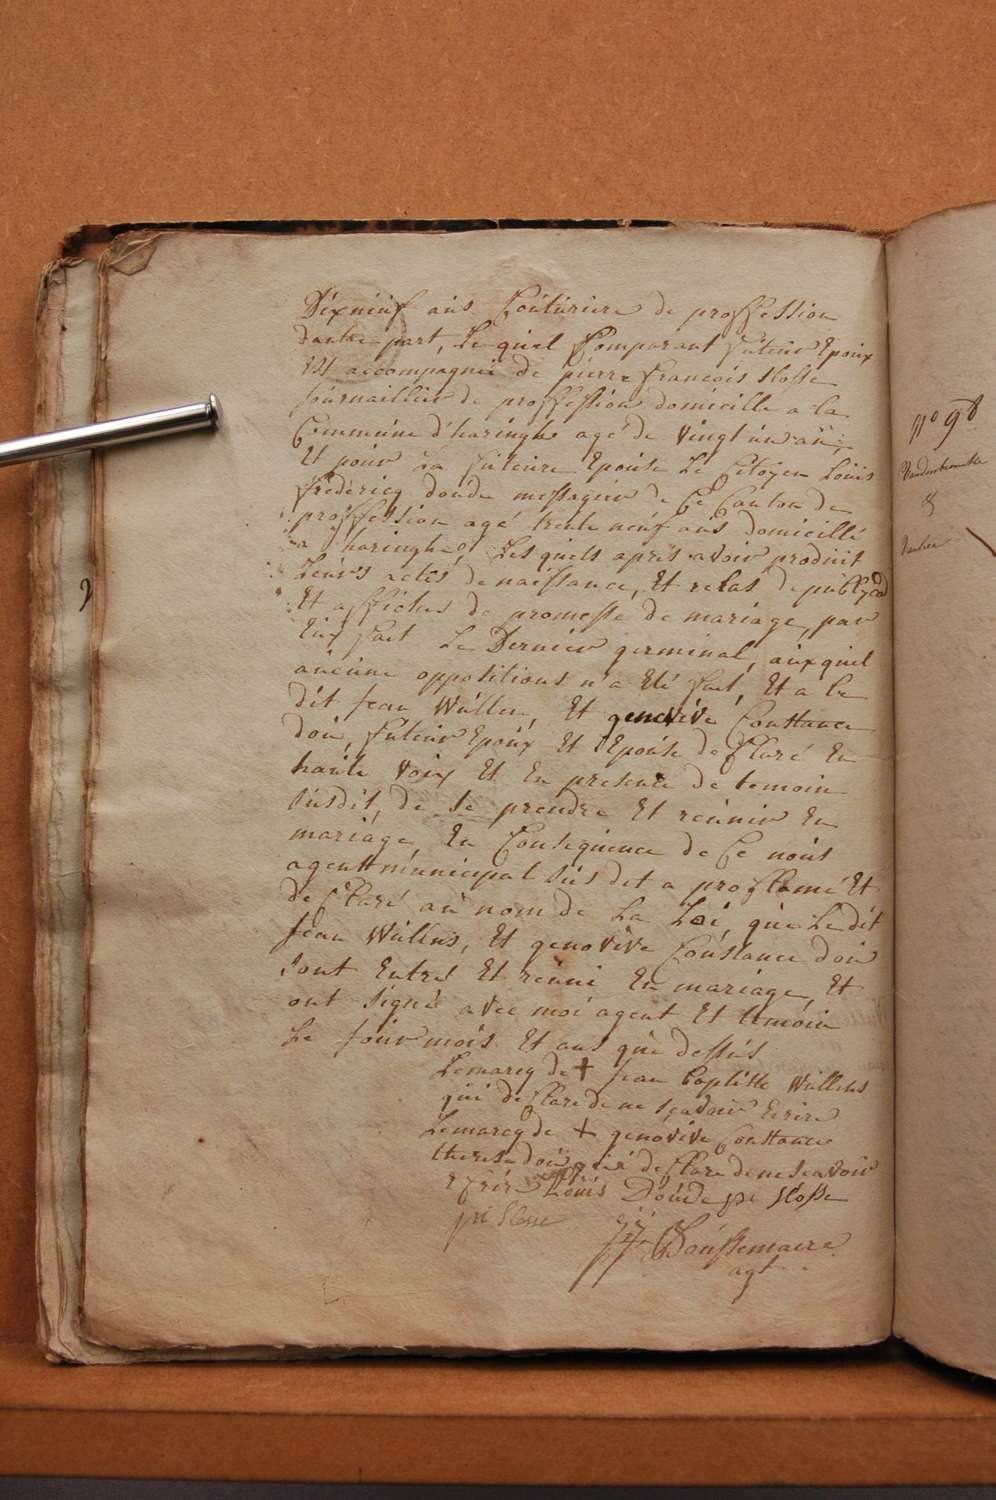 Dixneuf ans Couturiere de proffession
dautre part, Le quel Comparant futeur Epoux
Est accompagnié de pierre francois Hosse
Journaillier de proffestion domicille a la
Commune d'haringhe agé de vingt un an,
Et pour La futeure Epouse Le Citoyen Louis
fredericq doude messagier de Ce Canton de
proffession agé trente neuf ans domicillé
a haringhe, Les quels apres avoir produit
Leurs actes de naissance, Et de
Et affiches de promesse de mariage, par
Eux fait Le Dernier germinal, auxquel
aucune oppositions n'a Eté fait, Et a le
dit Jean Wullen, Et genovive Constance
doui, futeur Epoux Et Epouse de Claré En
haute voix Et En presence de temoin
susdit, de se prendre Et reunir En
mariage, En Consequence de Ce nous
agentt municipal sus dit a proclamé Et
de Claré au nom de La Loi, que Le dit
Jean Wullens, Et genovive Constance doui
sont Entres Et reuni En mariage, Et
ont signé avec moi agent Et temoin
Le jour mois Et ans que dessus
Lemarcq de + Jean baptiste Wullens
qui de Clare de ne sçavoir Ecrire
Lemarcq de + genovive Constance
therese doui qui de Clare de ne scavoir
Ecrire Louis Doude pe Hosse
pr
J J Boussemaere
agt
2
No 98
&